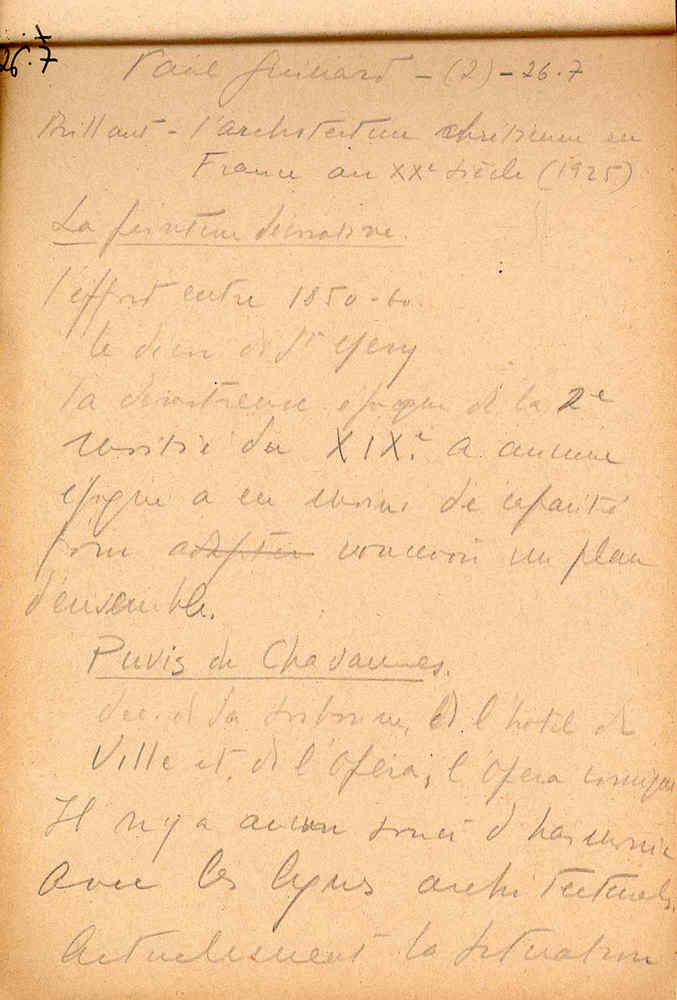 26.7
Paul - (2) - 26.7
Brillant - l'architecture chrétienne en
France au XXe siècle (1925)
La peinture décorative.
l'effort entre 1850-60.
le de St
la désastreuse époque de la 2e
moitié du XIXe. a aucune
époque a eu moins de capacité
pour adapter concevoir un plan
d'ensemble.
Puvis de Chavannes.
dec. de la Sorbonne, de l'hotel de
Ville et, de l'Opéra, l'Opera comique
Il n'y a aucun souci d'harmonie
avec les lignes architecturales.
Actuellement la situation